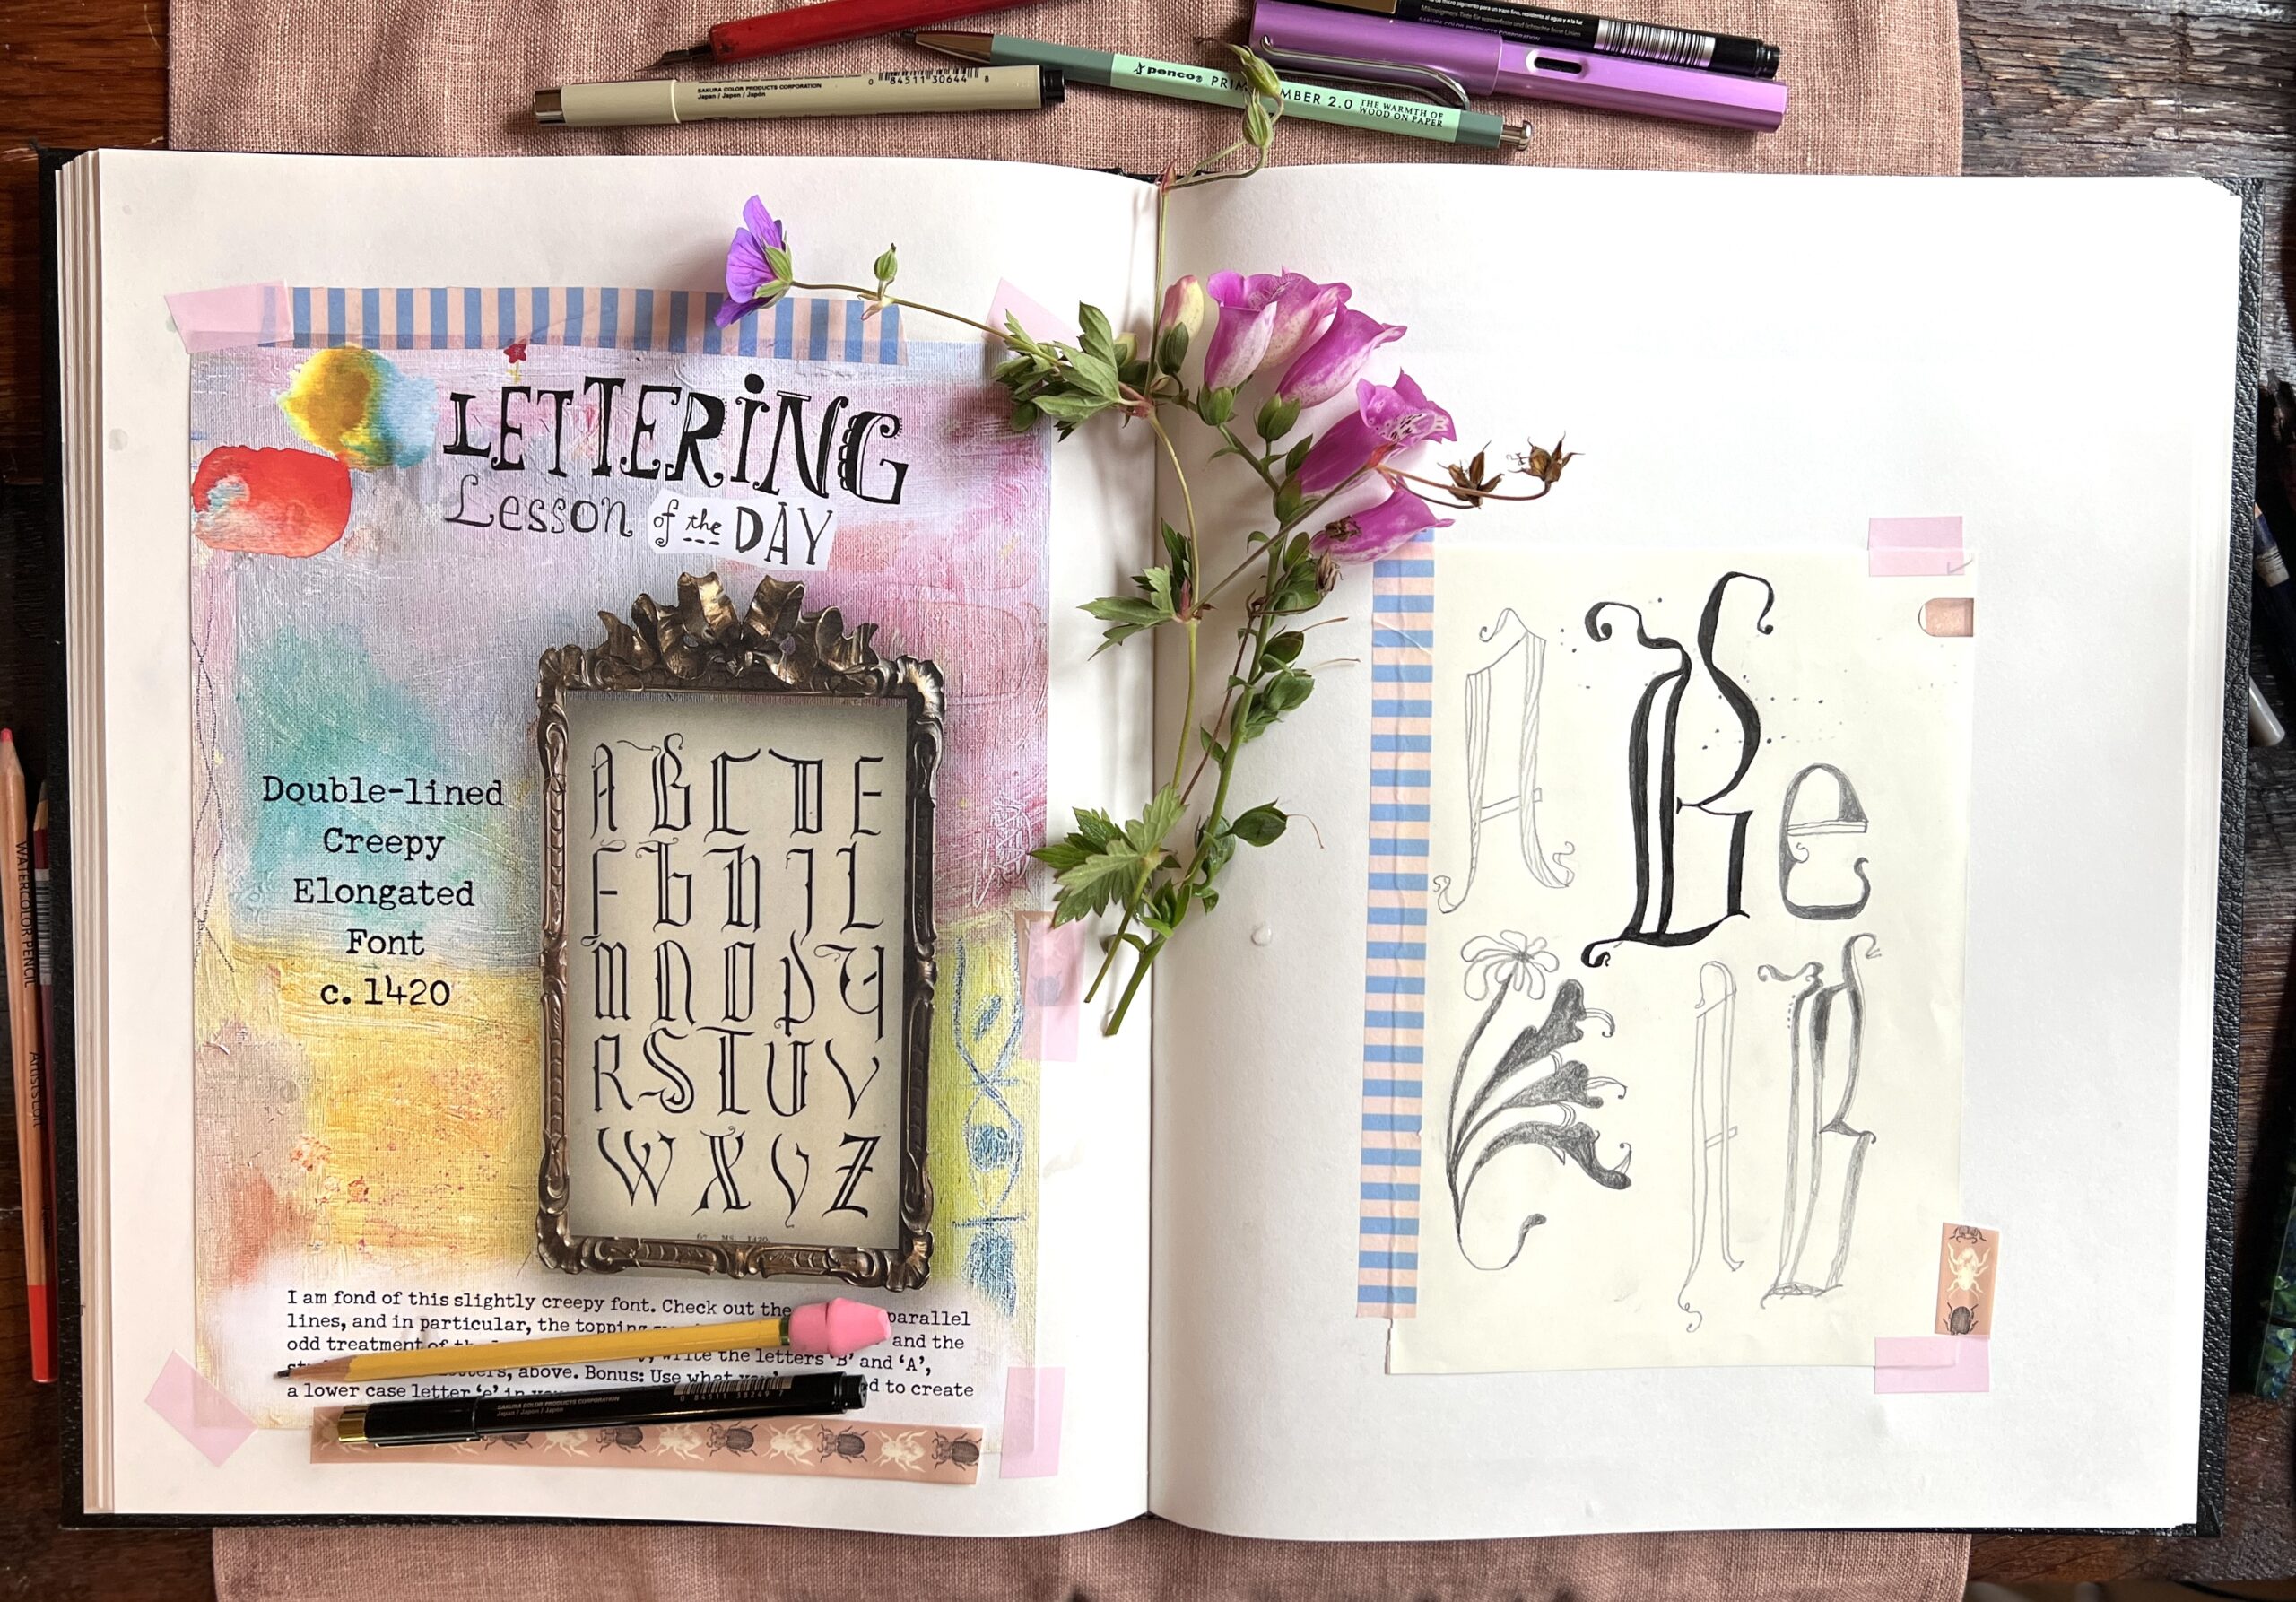 SAKURA COLOR PRODUCTS CORPORATION
Japan / Japon / Japón
0 84511 30644 8
penco® PRIM MBER 2.0 THE WARMTH OF
WOOD ON PAPER
SAKURA COLOR PRODUCTS CORPORATION
LETTERING
Lesson of the DAY
Double-lined
Creepy
Elongated
Font
c. 1420
A B C D E
F G H I L
M N O P Q
R S T U V
W X Y Z
I am fond of this slightly creepy font. Check out the parallel
lines, and in particular, the topping
odd treatment of and the
write the letters 'B' and 'A',
letters, above. Bonus: Use what
a lower case letter 'e' in to create
SAKURA COLOR PRODUCTS CORPORATION
Japan / Japon / Japón
A B e
A B
WATERCOLOR PENCIL